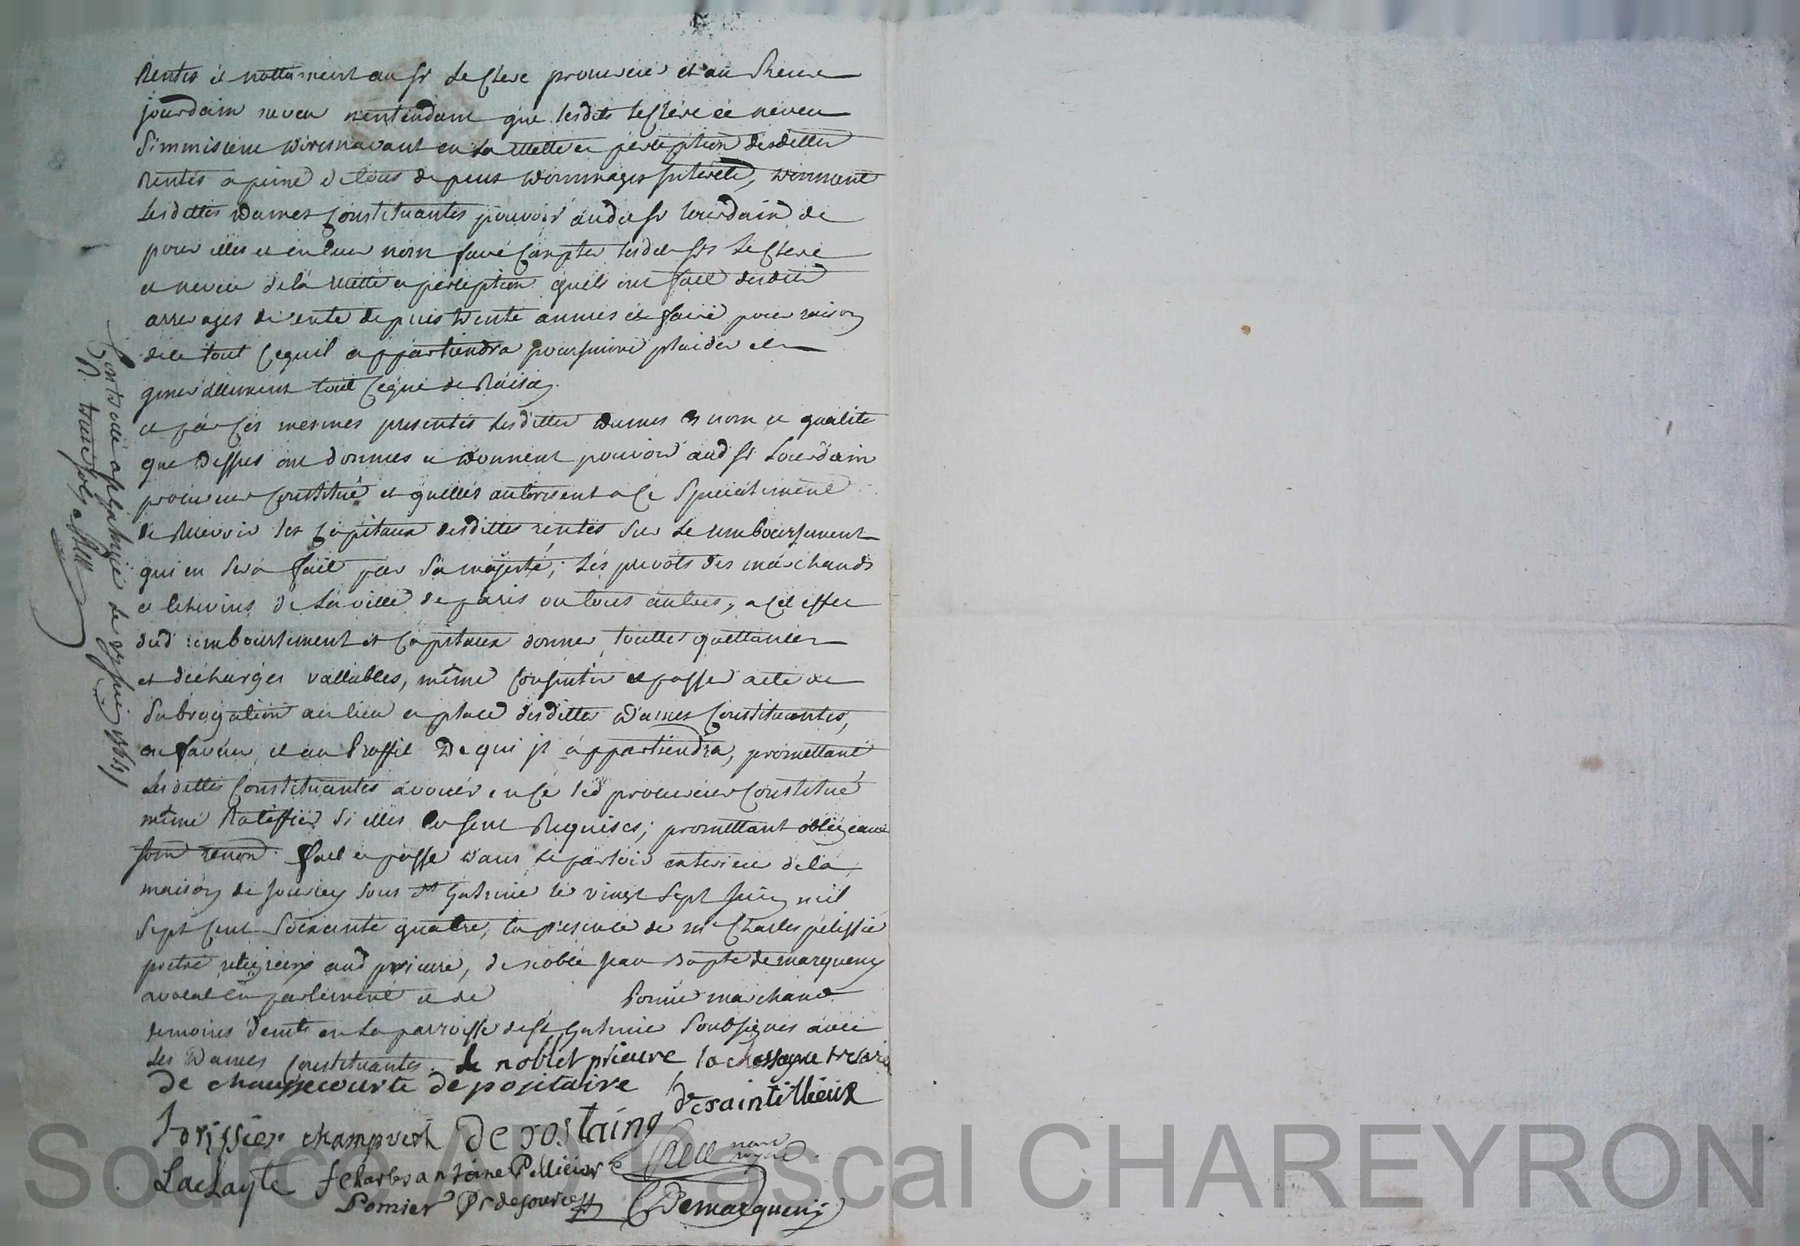 Rentes et nottament au Sr LeClerc procureur et au Sieur
jourdain neveu n'entendant que lesdits leClerc et neveu
S'immiscent doresnavant en la recette et perception desdittes
Rentes a peine de tous depens dommages Interets, donnant
Lesdittes dames Constituantes pouvoir audit Sr Jourdain de
pour elles et en leur nom faire Compter lesdits Srs LeClerc
et neveu de la recette et perception quils ont fait desdits
arrerages de rente depuis trente annees et faire pour raison
de ce tout Cequil appartiendra poursuivre plaider et
generallement tout Ceque de Raison.
et par Ces mesmes presentes Lesdittes dames es nom et qualite
que Dessus ont donnés et donnent pouvoir aud Sr Jourdain
procureur Constitué et quelles autorisent a Ce Specialement
de Recevoir les Capitaux desdittes rentes Sur Le remboursement
qui en Sera fait par Sa majesté, Les prevots des marchands
et Echevins de La ville de paris ou tous autres, a Cet effet
dud remboursement et Capitaux donner touttes quittances
et décharges vallables, même Consentir et passer acte de
Subrogation au lieu et place desdittes dames Constituantes,
en faveur et au Proffit De qui il appartiendra, promettant
Lesdittes Constituantes avouer en Ce led procureur Constitué
même Ratiffier Si elles en Sont Requises; promettant obligeant
renon. fait et passé dans Le parloir exterieur de la
maison de Jourcey Sous St Galmier le vingt Sept Juin mil
Sept Cent Soixante quatre, En presence de mr Charles pelissier
pretre religieux aud prieuré, de noble Jean Bapte demarqueny
avocat en parlement et de Pomier marchand
demeurants en La parroisse de St Galmier Soubsignés avec
Les Dames Constituantes. de noblet prieure la chassagne
de chaussecourte depositaire
desaintillieux
forissier champvert De rostaing
Laclayte f Charles antoine Pellicier
Pomier Demarqueny
Controllé a St galmier Le
Source AD Pascal CHAREYRON